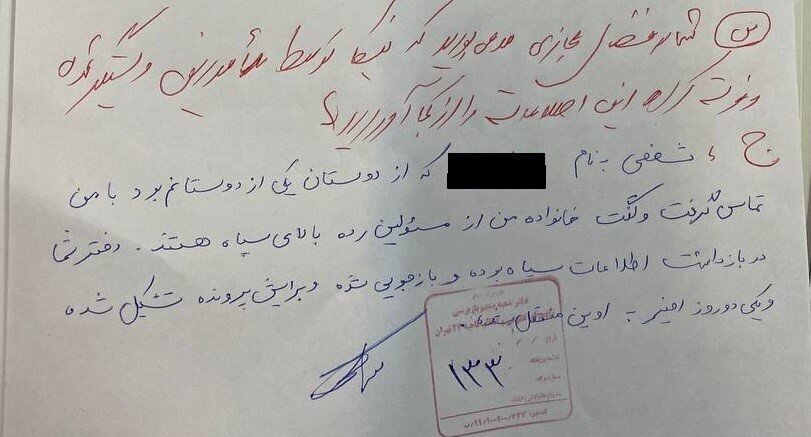 س) شما در فضای مجازی مدعی بودید که نیکا توسط مامورین دستگیر شده
و فوت کرده این اطلاعات را از کجا آوردید؟
ج) شخصی به نام که از دوستان یکی از دوستانم بود با من
تماس گرفت و گفت خانواده من از مسئولین رده بالای سپاه هستند. دختر شما
در بازداشت اطلاعات سپاه بوده و بازجویی شده و برایش پرونده تشکیل شده
و یکی دو روز اخیر به اوین منتقل شده.
۱۳۳۰